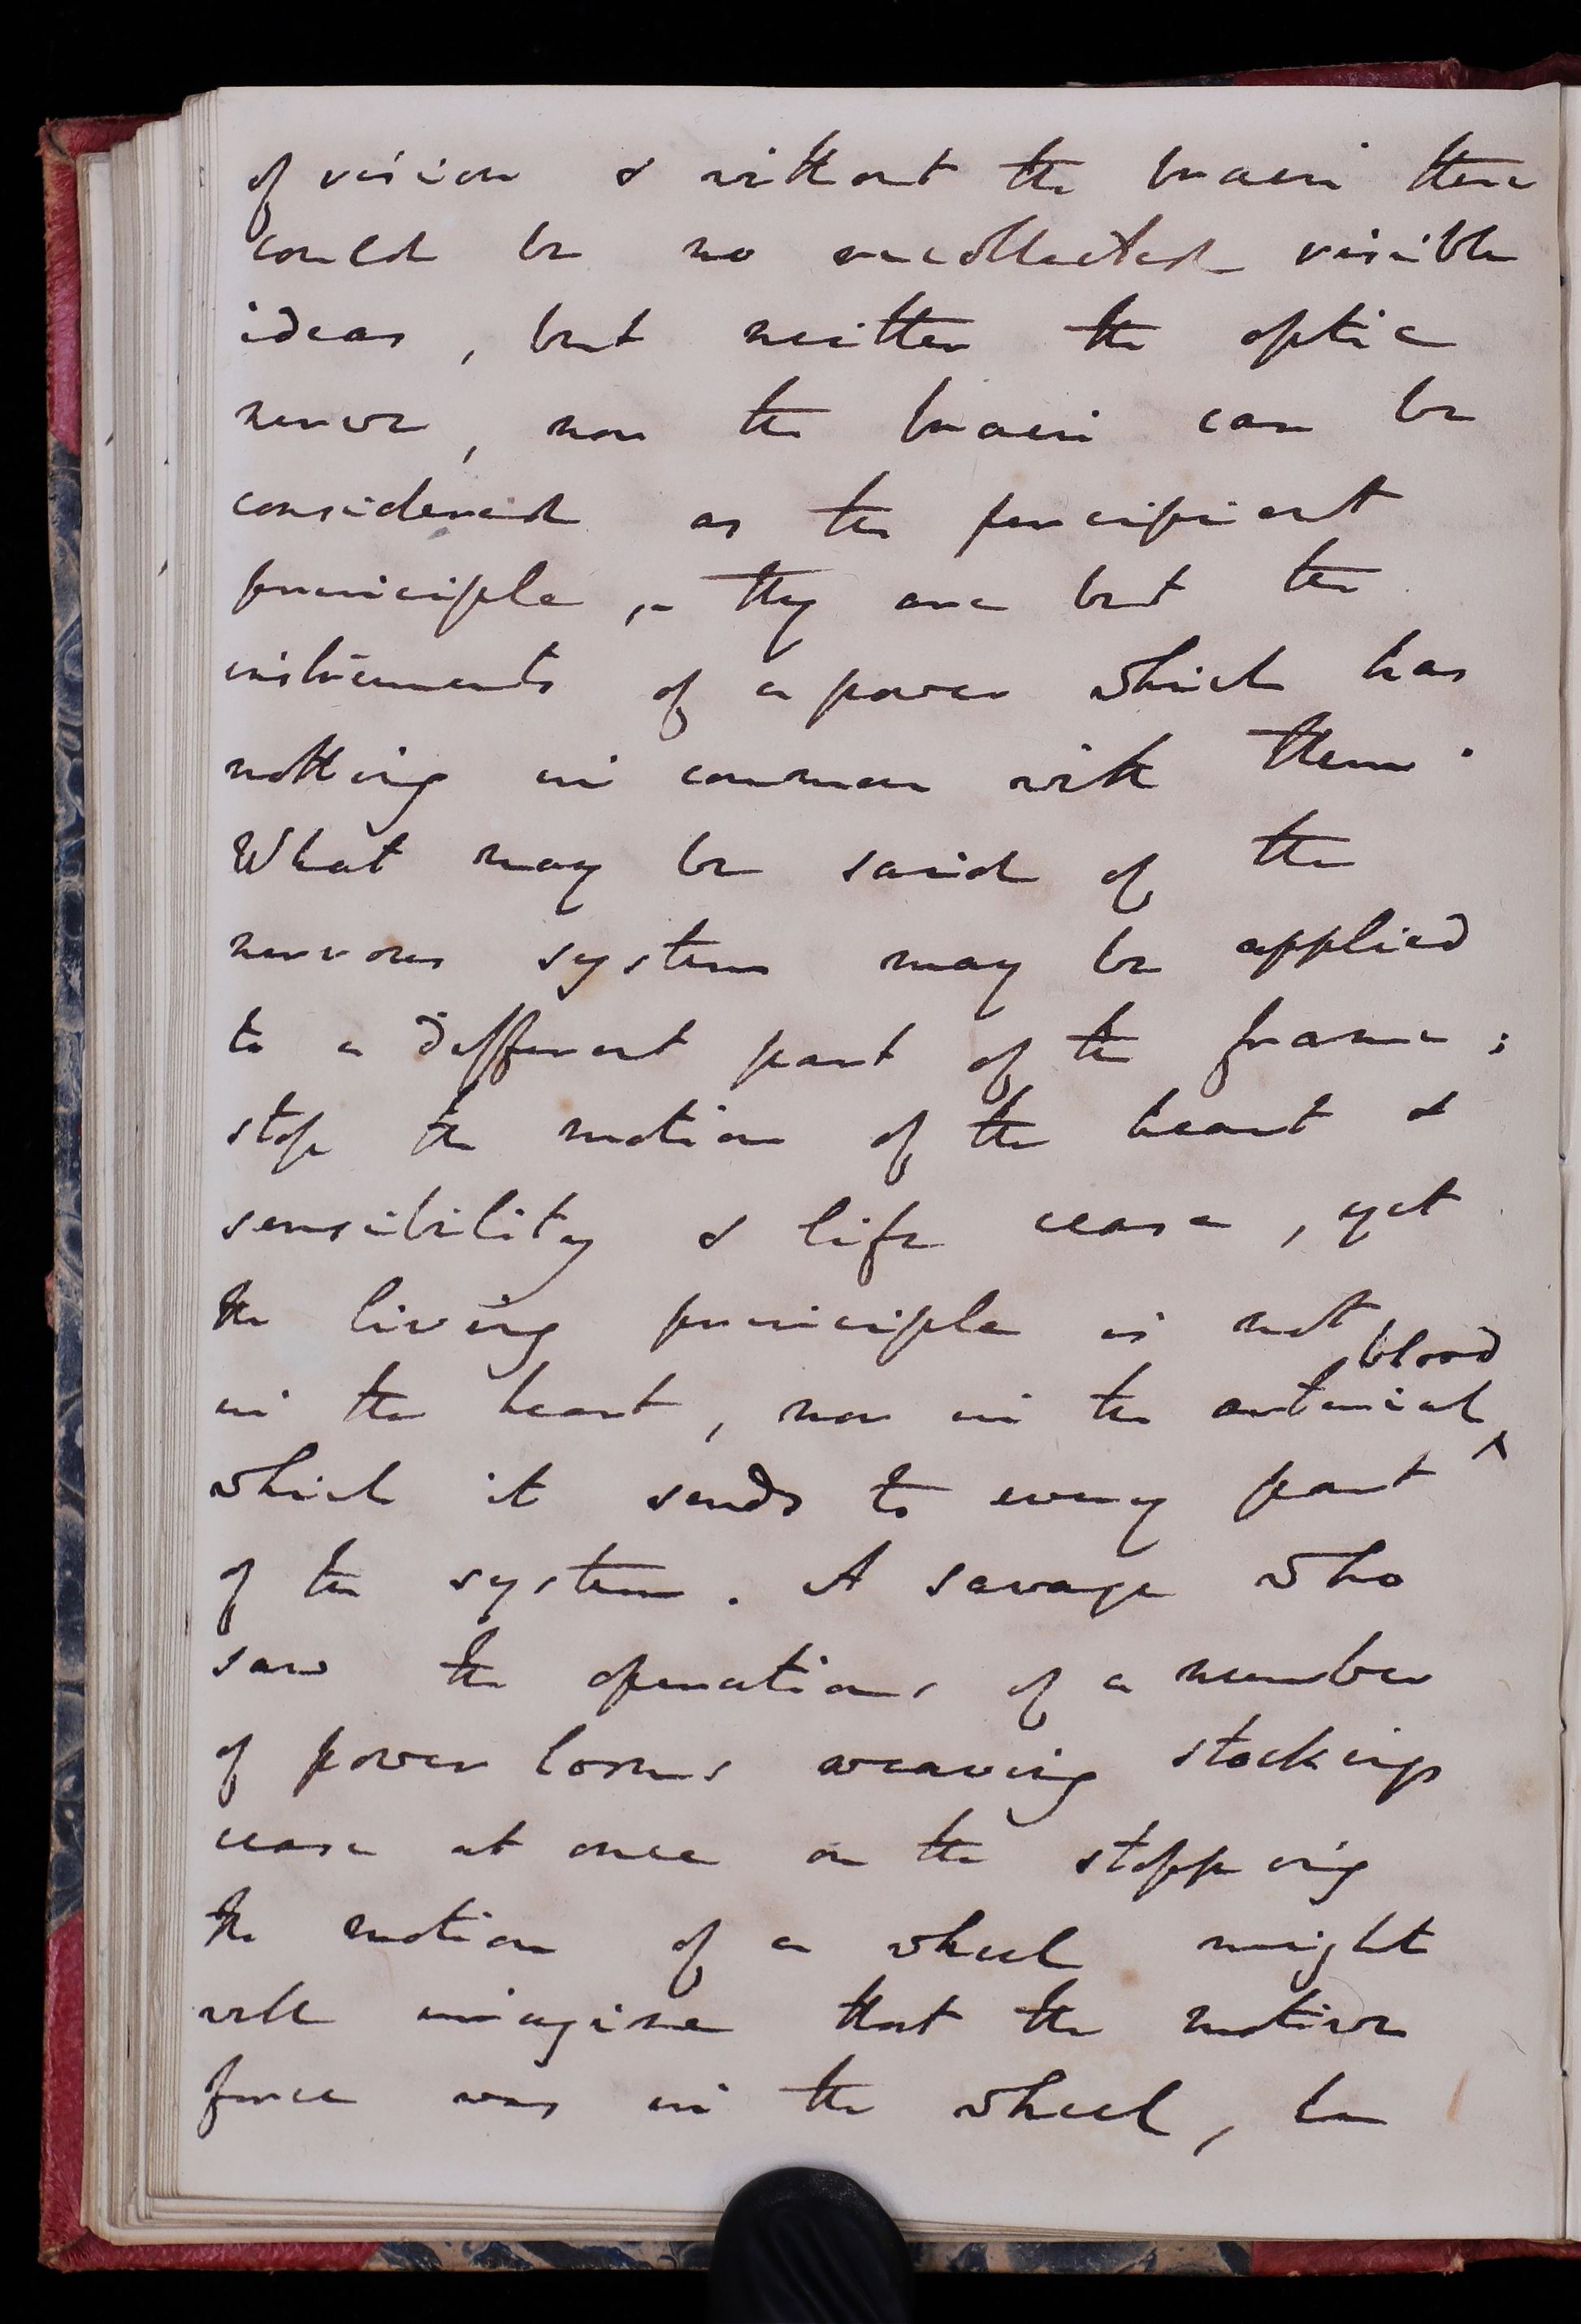 of vision & without the brain there
could be no recollected visible
ideas, but neither the optic
nerve, nor the brain can be
considered as the percipient
principle, - they are but the
instruments of a power which has
nothing in common with them.
What may be said of the
nervous system may be applied
to a different part of the frame;
stop the motion of the heart &
sensibility & life cease, yet
the living principle is not
in the heart, nor in the arterial ^blood
which it sends to every part
of the system. A savage who
saw the operations of a number
of power looms weaving stockings
cease at once on the stopping
the motion of a wheel might
well imagine that the motive
force was in the wheel, he